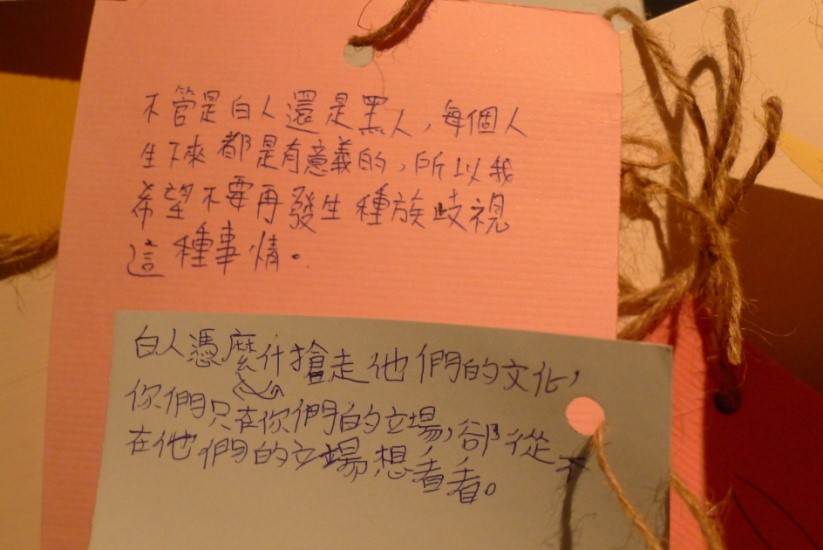 不管是白人還是黑人，每個人
生下來都是有意義的，所以我
希望不要再發生種族歧視
這種事情。
白人憑麼什搶走他們的文化，
你們只在你們的立場，卻從不
在他們的立場想看看。